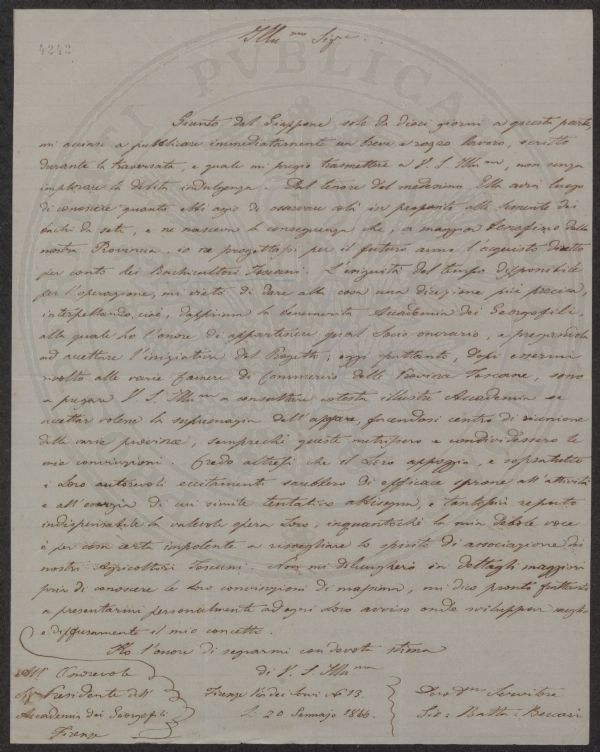 4242
Illu.mo Sig.re
Giunto dal Giappone solo da dieci giorni a questa parte,
mi accinsi a pubblicare immediatamente un breve e rozzo lavoro, scritto
durante la traversata, e quale mi pregio trasmettere a V. S. Illu.ma, non senza
implorare la debita indulgenza. Dal tenore del medesimo Ella avrà luogo
di conoscere quanto ebbi agio di osservare colà in proposito alle semente dei
bachi da seta, e ne nasceva la conseguenza che, a maggior beneficio della
nostra Provincia, io ne progettassi per il futuro anno l'acquisto diretto
per conto dei Bachicultori Toscani. L'esiguità del tempo disponibile
per l'operazione, mi vietò di dare alla cosa una direzione più precisa,
interpellando, cioè, dapprima la benemerita Accademia dei Georgofili,
alla quale ho l'onore di appartenere qual Socio onorario, e pregandola
ad accettare l'iniziativa del Progetto; oggi pertanto, dopo essermi
rivolto alle varie Camere di Commercio delle Provincie Toscane, sono
a pregare V. S. Illu.ma a consultare cotesta illustre Accademia se
accettar volesse la supremazia dell'affare, facendosi centro di riunione
delle varie provincie, sempreché queste nutrissero e condividessero le
mie convinzioni. Credo altresì che il Loro appoggio, e soprattutto
i Loro autorevoli eccitamenti sarebbero di efficace sprone all'attività
e all'energia di cui simile tentativo abbisogna, e tantopiù reputo
indispensabile la valevole opera Loro, inquantoché la mia debole voce
è per cosa certa impotente a risvegliare lo spirito di associazione dei
nostri Agricoltori Toscani. Non mi dilungherò in dettagli maggiori
pria di conoscere le Loro convinzioni di massima, mi dico pronto frattanto
a presentarmi personalmente ad ogni Loro avviso onde sviluppar meglio
e diffusamente il mio concetto.
Ho l'onore di segnarmi con devota stima
di V. S. Illu.ma
All' Onorevole
Sig. Presidente dell'
Accademia dei Georgofili
Firenze
Firenze Via dei Servi N. 13
20 Gennajo 1866.
Dev.mo Servitore
Gio: Batta: Beccari